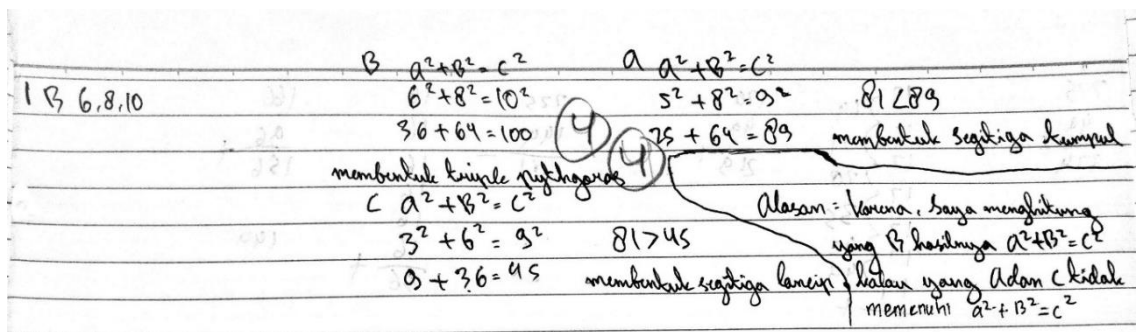 1 B 6,8,10
B a²+B²=c²
6²+8²=10²
36+64=100 4
membentuk triple phythgoras
a a²+B²=c²
5²+8²=9² 81<89
25+64=89 membentuk segitiga tumpul
4
C a²+B²=c²
3²+6²=9² 81>45
9+36=45 membentuk segitiga lancip
Alasan = karena, saya menghitung
yang B hasilnya a²+B²=c²
kalau yang A dan C tidak
memenuhi a²+B²=c²